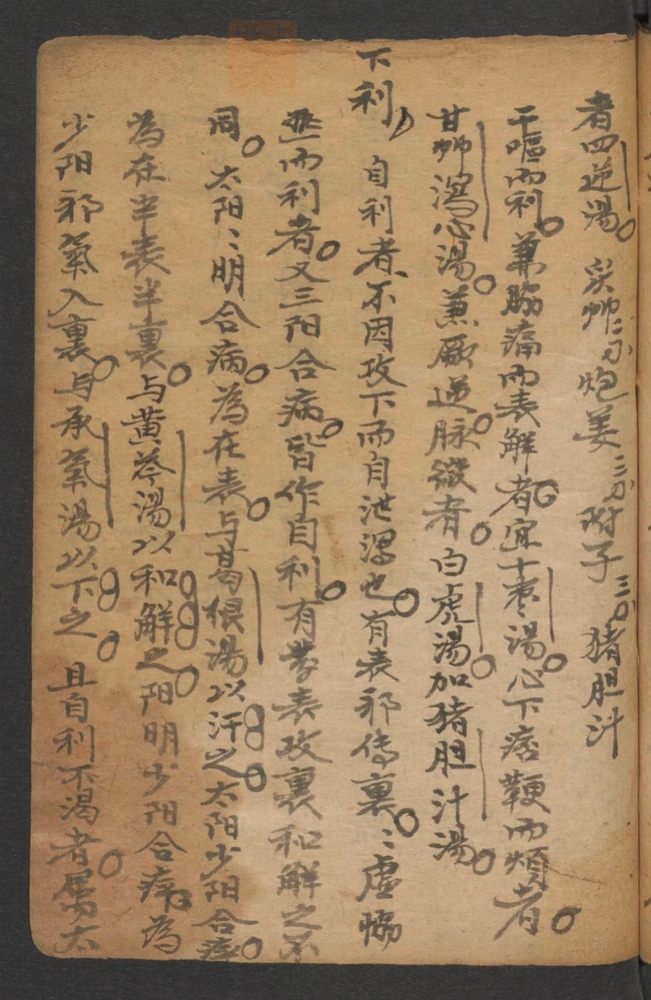 者四逆湯。炙艸二 炮姜三 附子三 猪胆汁
干嘔而利。兼脇痛而表解者。宜十枣湯。心下痞鞕而煩者。
甘艸瀉心湯。兼厥逆脉微者。白虎湯加猪胆汁湯。
下利 自利者、不因攻下而自泄瀉也。有表邪傳裏。〻虚恊
熱而利者。又三阳合病。皆作自利。有發表攻裏和解之不
同。太阳〻明合病。為在表。与葛根湯以汗之。太阳少阳合病。
為在半表半裏。与黄芩湯以和解之。阳明少阳合病為
少阳邪氣入裏。与承氣湯以下之。且自利不渴者。属太